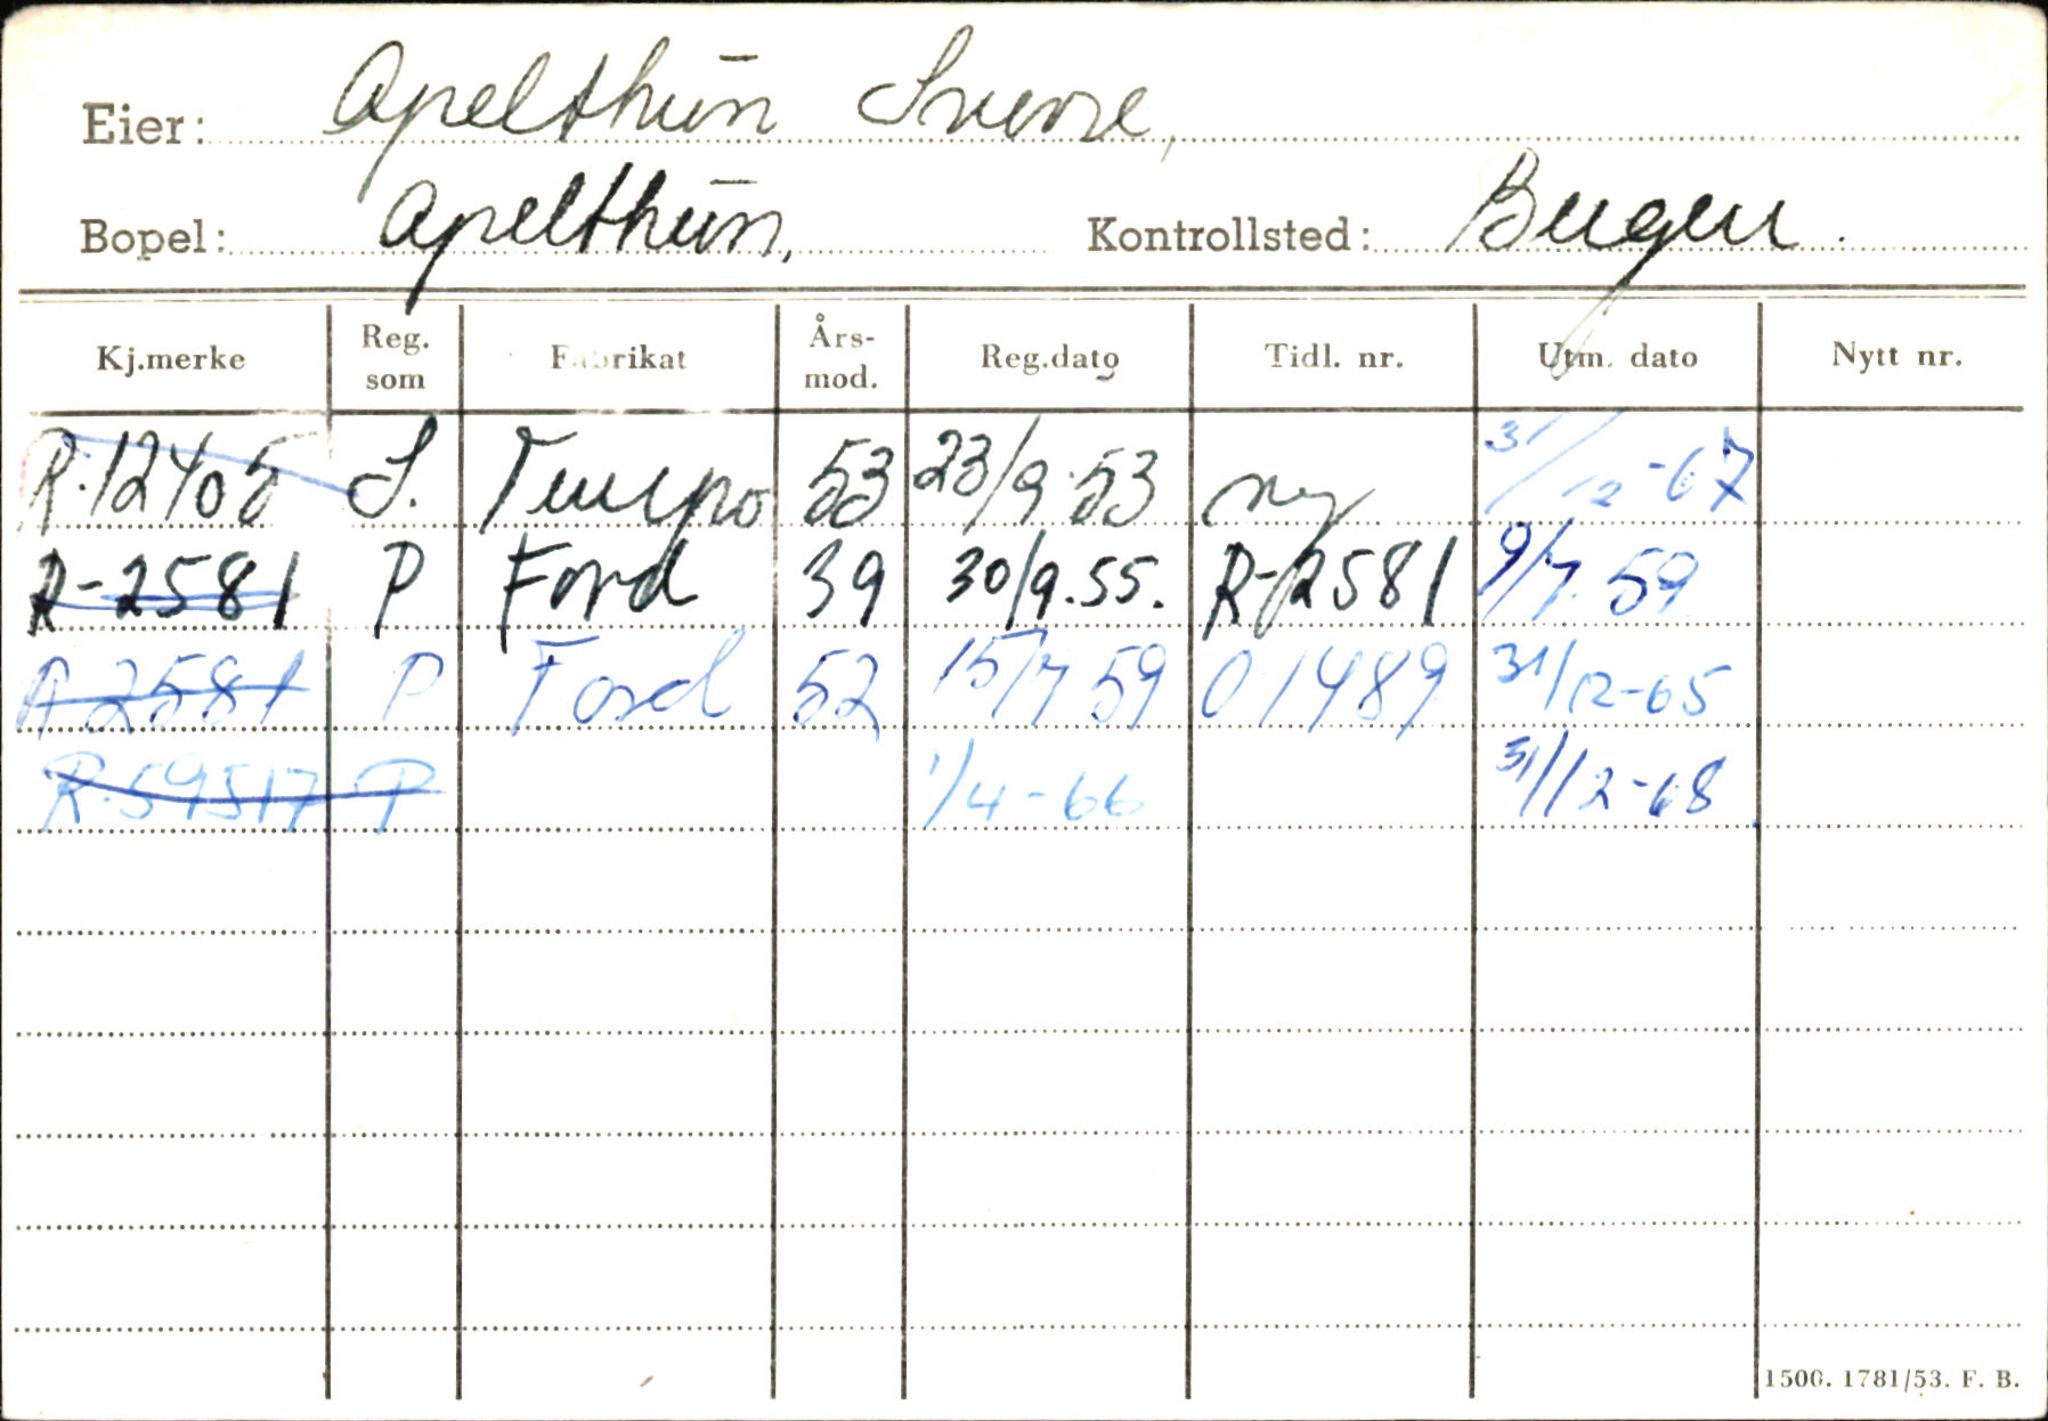 Eier: Apelthun Sverre,
Bopel: Apelthun, Kontrollsted: Bergen.
Kj.merke Reg. som Fabrikat Års-mod. Reg.dato Tidl. nr. Utm. dato Nytt nr.
R.12405 S. Tempo 53 23/9.53 ny 31/12-67
R-2581 P Ford 39 30/9.55. R-2581 9/7.59
R-2581 P Ford 52 15/7 59 01489 31/12-65
R.59517 P 1/4-66 31/12-68
1500. 1781/53. F. B.